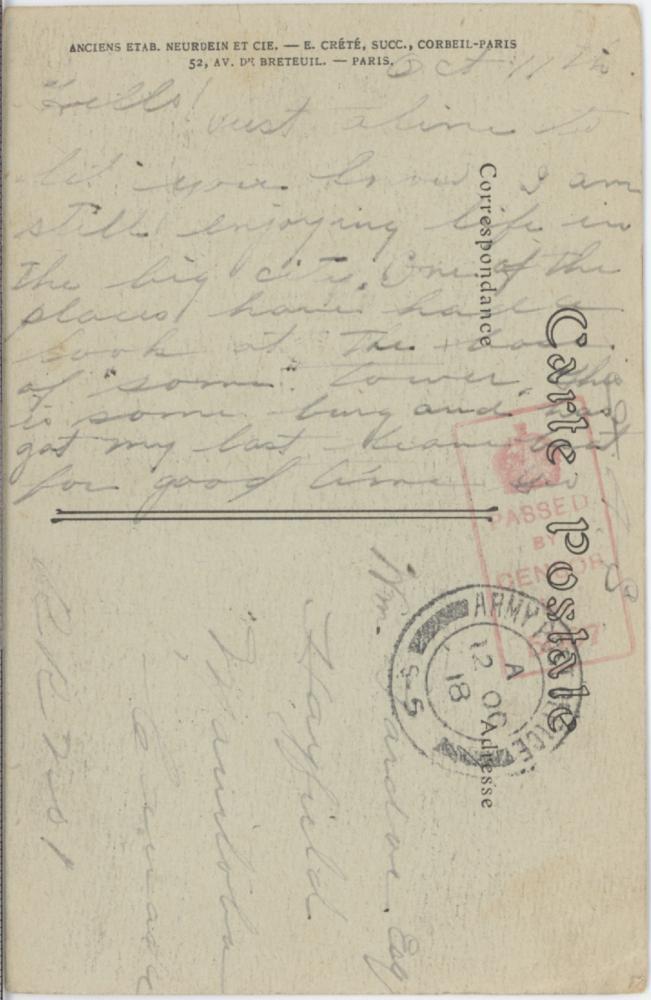 ANCIENS ETAB. NEURDEIN ET CIE. — E. CRÉTÉ, SUCC., CORBEIL-PARIS
52, AV. DE BRETEUIL. — PARIS.
Oct 11th.
Hello!
Just a line to
let you know I am
still enjoying life in
the big city. One of the
places have had a
look at. The
of "some" tower. This
is some burg and has
got my last
for good time
Correspondance
Carte Postale
Adresse
PASSED
BY
CENSOR
ARMY
A
12 OC
18
S-5
Wm. Esq
Hayfield
Manitoba
Canada